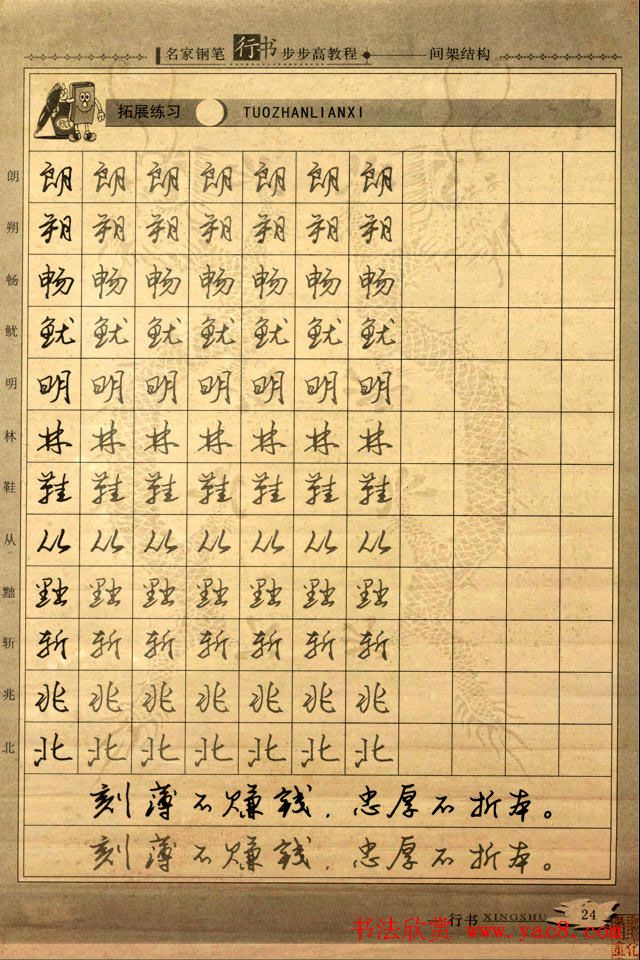 名家钢笔行书步步高教程 间架结构
拓展练习 TUOZHANLIANXI
朗 朗 朗 朗 朗 朗 朗 朗
朔 朔 朔 朔 朔 朔 朔 朔
畅 畅 畅 畅 畅 畅 畅 畅
鱿 鱿 鱿 鱿 鱿 鱿 鱿 鱿
明 明 明 明 明 明 明 明
林 林 林 林 林 林 林 林
鞋 鞋 鞋 鞋 鞋 鞋 鞋 鞋
从 从 从 从 从 从 从 从
黜 黜 黜 黜 黜 黜 黜 黜
斩 斩 斩 斩 斩 斩 斩 斩
兆 兆 兆 兆 兆 兆 兆 兆
北 北 北 北 北 北 北 北
刻薄不赚钱，忠厚不折本。
刻薄不赚钱，忠厚不折本。
行书 XINGSHU 24
书法欣赏 www.yac8.com